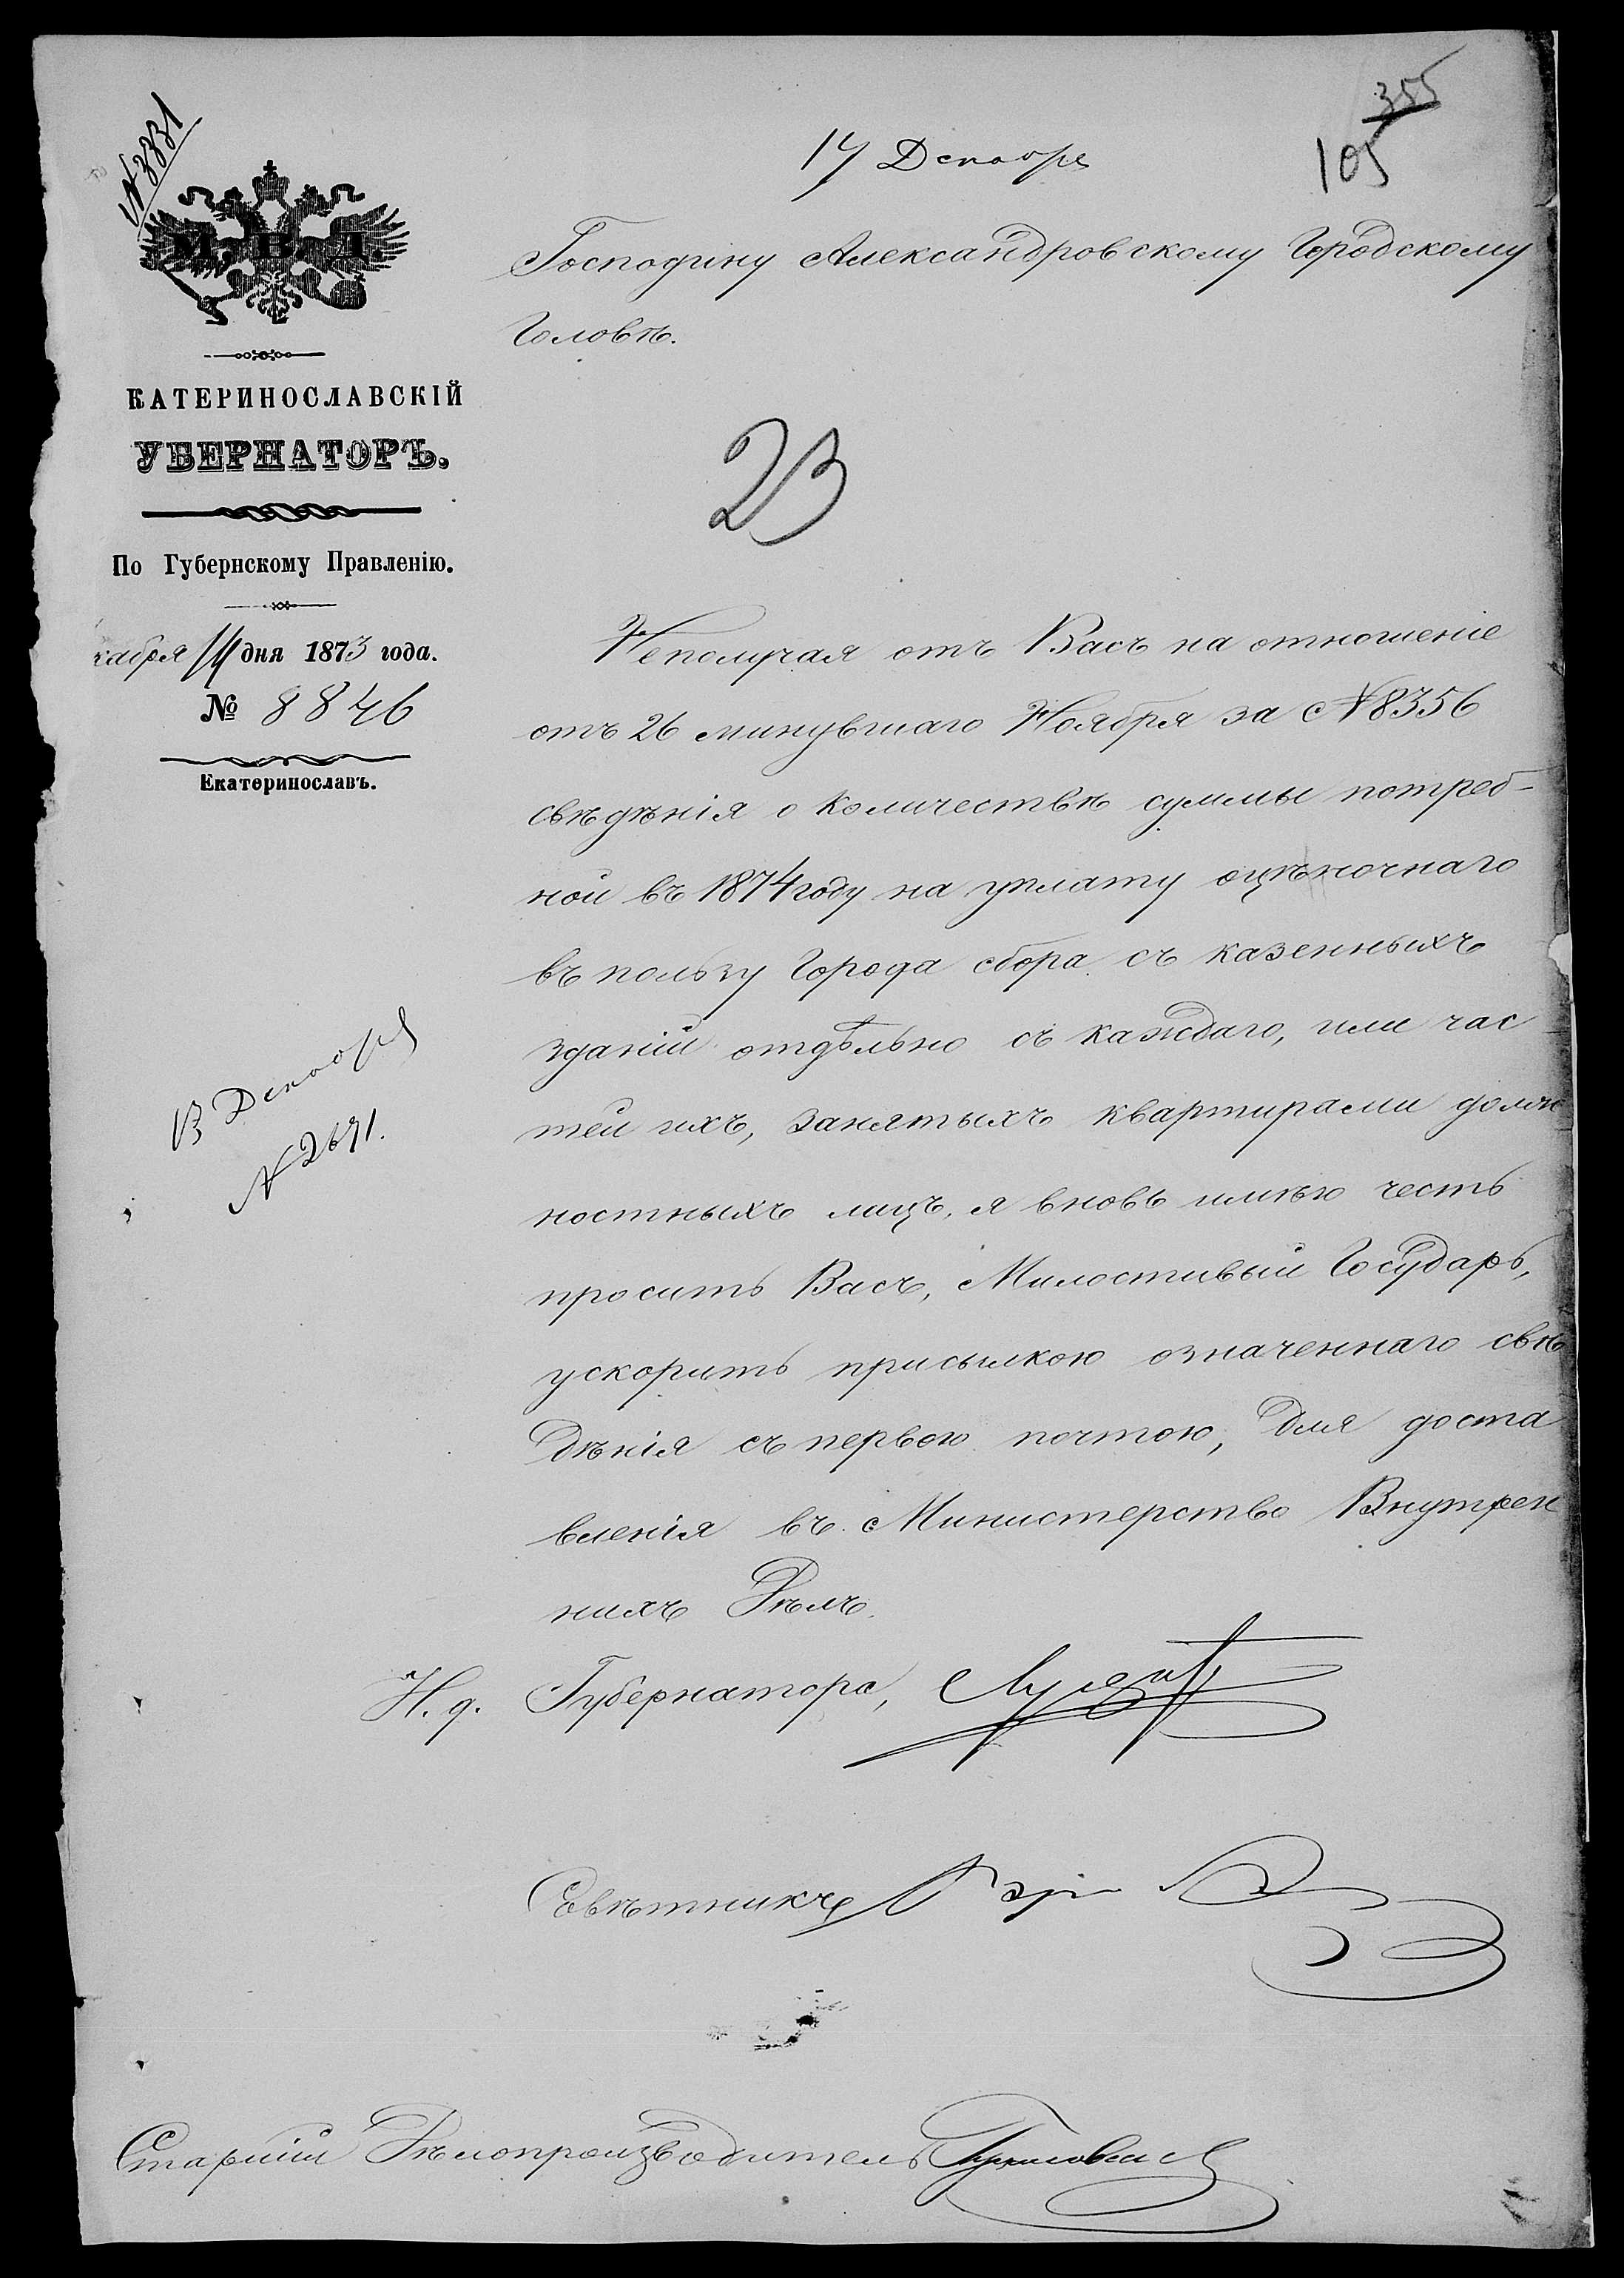 № 3331
355
105
17 Декабря
М. В. Д.
Господину Александровскому Городскому
Головѣ.
КАТЕРИНОСЛАВСКІЙ
УБЕРНАТОРЪ.
23
По Губернскому Правленію.
кабря 14 дня 1873 года.
№ 8846
Екатеринославъ.
Неполучая отъ Васъ на отношеніе
отъ 26 минувшаго Ноября за № 8356
свѣдѣнія о количествѣ суммы потреб-
ной въ 1874 году на уплату оцѣночнаго
въ пользу города сбора съ казенныхъ
зданій отдѣльно съ каждаго, или час-
тей ихъ, занятыхъ квартирами долж
ностныхъ лицъ, я вновь имѣю честь
просить Васъ, Милостивый Государь,
ускорить присылкою означеннаго свѣ
дѣнія съ первою почтою, для доста
вленія въ Министерство Внутрен
нихъ Дѣлъ.
Декабря
№ 2691.
И. д. Губернатора,
Совѣтникъ
Старшій Дѣлопроизводитель